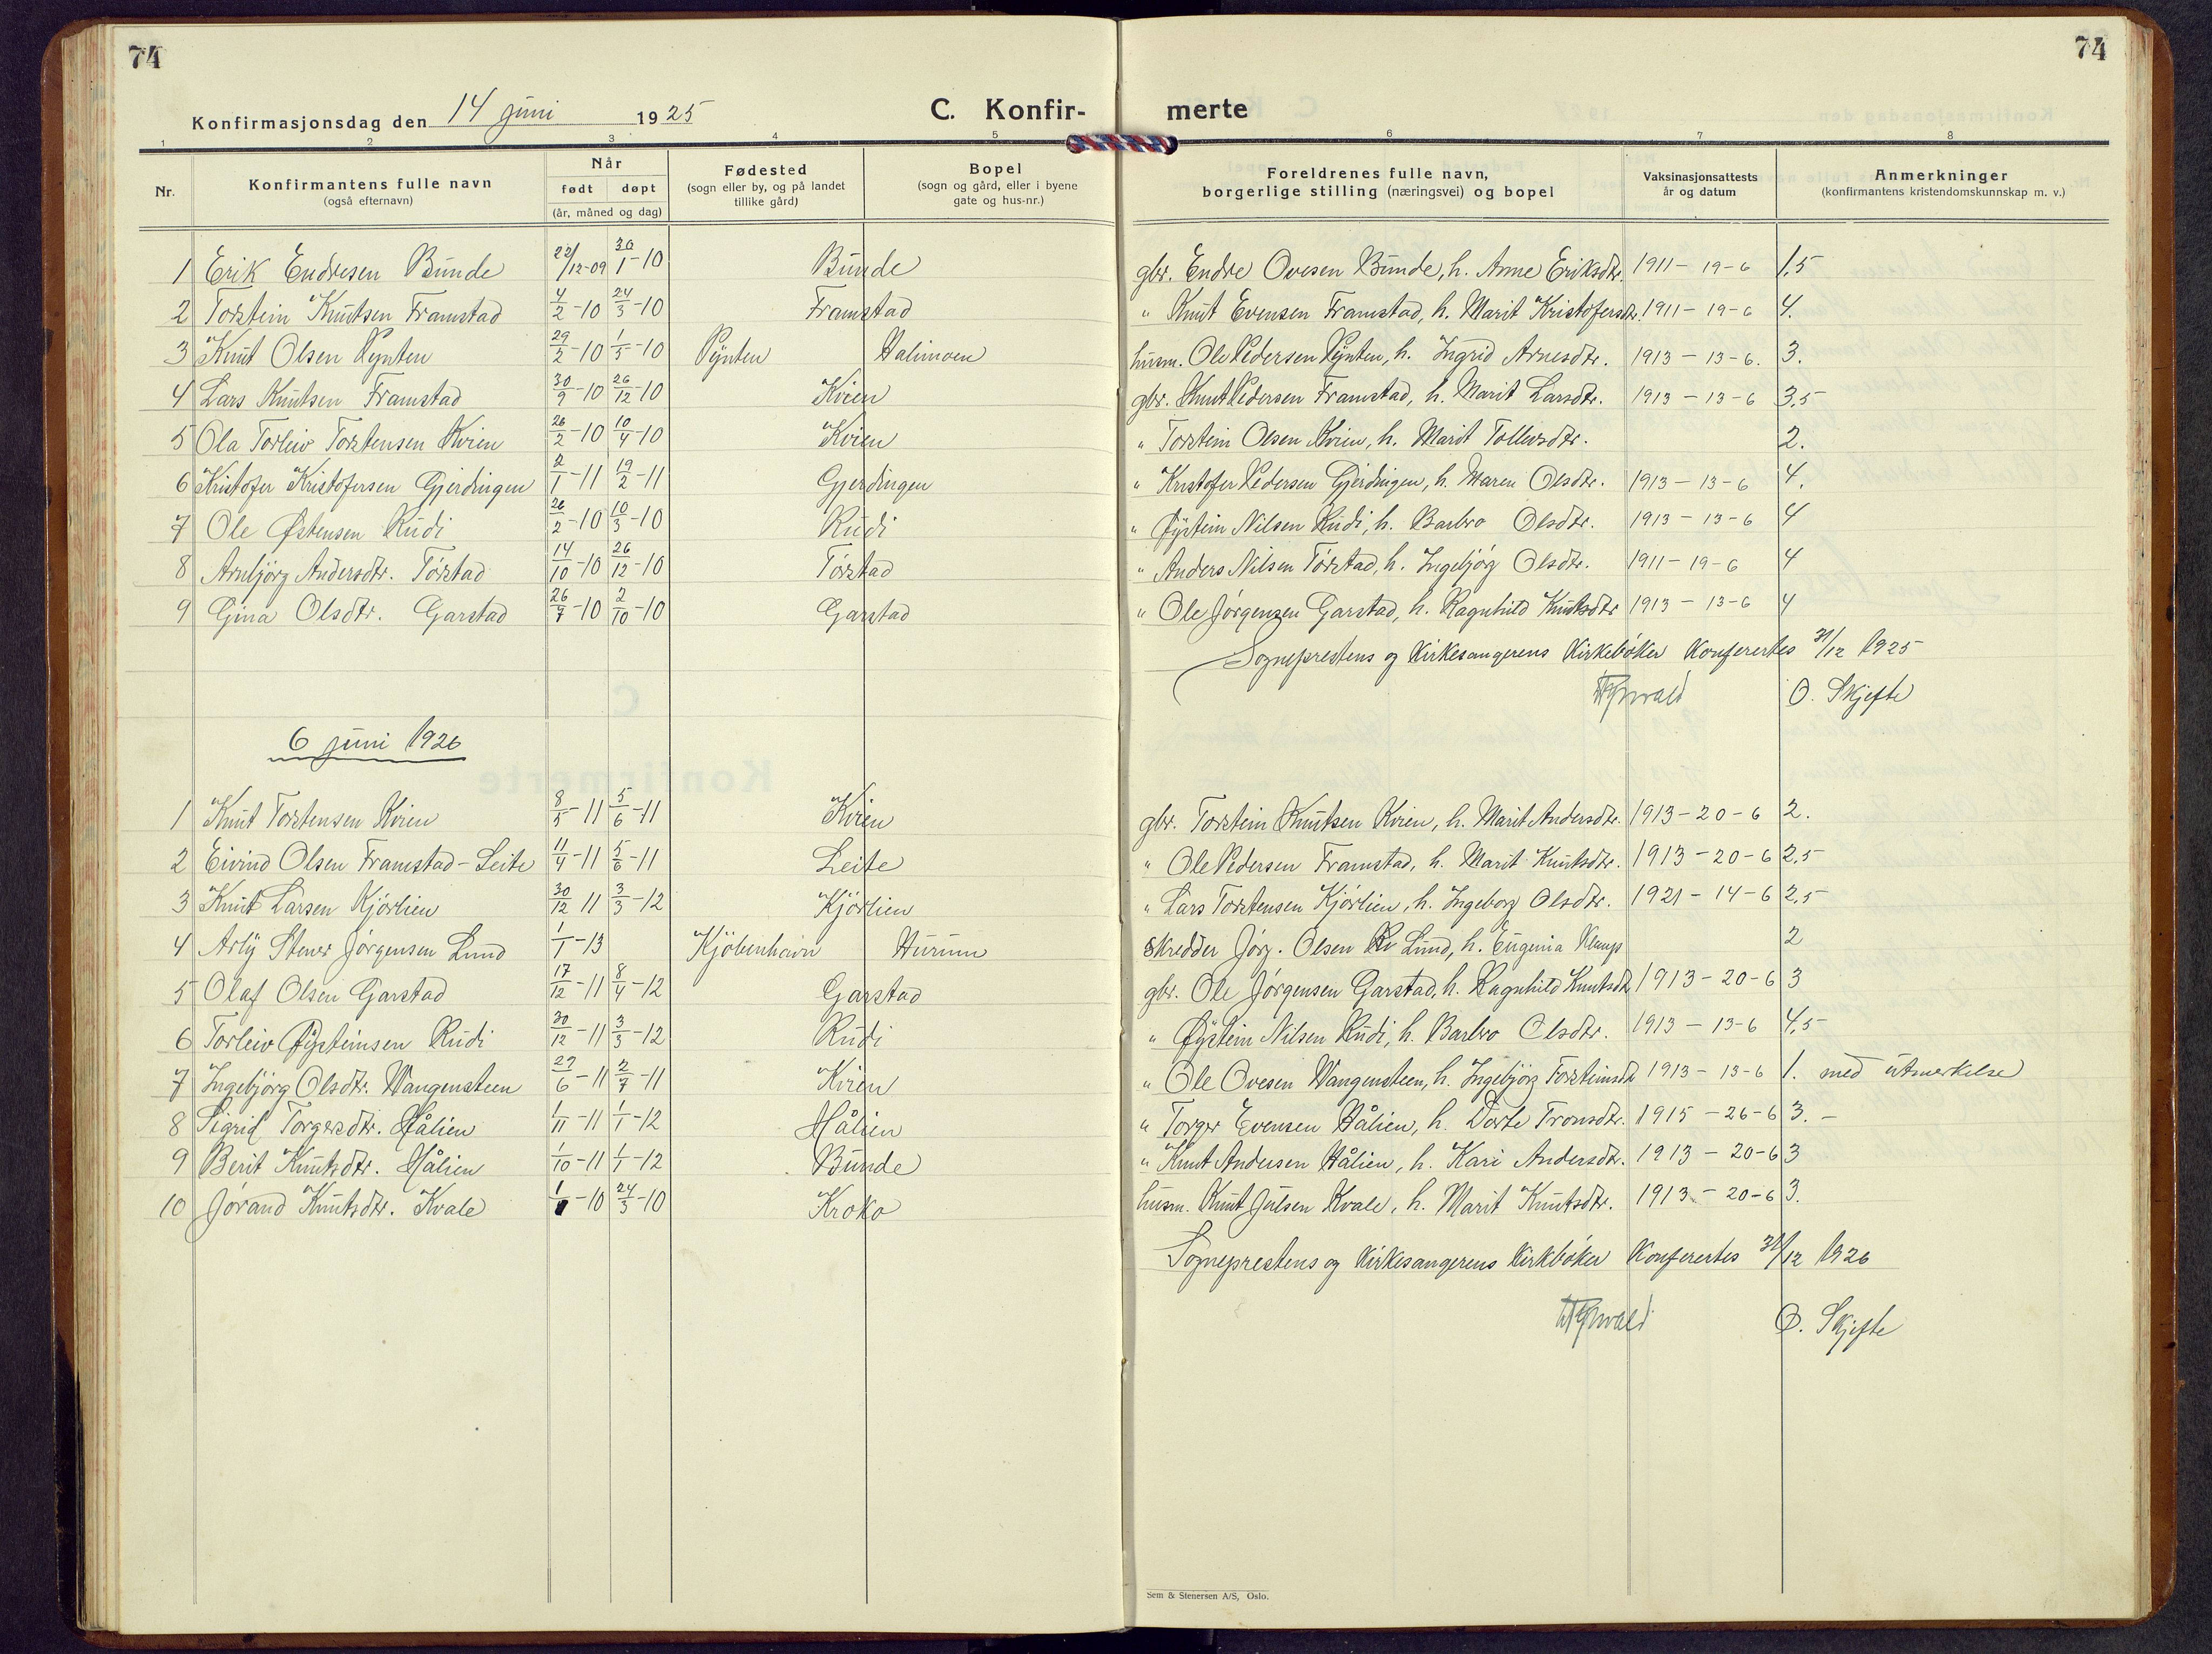 74
74
Konfirmasjonsdag den 14 juni 1925
C. Konfir-
merte
1 2 3 4 5 6 7 8
Nr.
Konfirmantens fulle navn
(også efternavn)
Når
født døpt
(år, måned og dag)
Fødested
(sogn eller by, og på landet
tillike gård)
Bopel
(sogn og gård, eller i byene
gate og hus-nr.)
Foreldrenes fulle navn,
borgerlige stilling (næringsvei) og bopel
Vaksinasjonsattests
år og datum
Anmerkninger
(konfirmantens kristendomskunnskap m. v.)
1 Erik Endresen Bunde 22/12-09 30/1-10 Bunde gbr. Endre Ovesen Bunde, h. Anne Eriksdtr. 1911-19-6 1,5
2 Torstein Knutsen Framstad 4/2-10 24/3-10 Framstad " Knut Evensen Framstad, h. Marit Kristofersdtr. 1911-19-6 4.
3 Knut Olsen Pynten 29/2-10 1/5-10 Pynten Halimoen husm. Ole Pedersen Pynten, h. Ingrid Arnesdtr. 1913-13-6. 3.
4 Lars Knutsen Framstad 30/9-10 26/12-10 Kvien gbr. Knut Pedersen Framstad, h. Marit Larsdtr. 1913-13-6 3,5
5 Ola Torleiv Torstensen Kvien 26/2-10 10/4-10 Kvien " Torstein Olsen Kvien, h. Marit Tollevsdtr. 2.
6 Kristofer Kristofersen Gjerdingen 2/1-11 19/2-11 Gjerdingen " Kristofer Pedersen Gjerdingen, h. Maren Olsdtr. 1913-13-6 4.
7 Ole Østensen Rudi 26/2-10 10/3-10 Rudi " Øystein Nilsen Rudi, h. Barbro Olsdtr. 1913-13-6 4
8 Arnbjörg Andersdtr. Törstad 14/10-10 26/12-10 Törstad " Anders Nilsen Törstad, h. Ingebjörg Olsdtr. 1911-19-6 4
9 Gina Olsdtr. Garstad 26/7-10 2/10-10 Garstad " Ole Jörgensen Garstad, h. Ragnhild Knutsdtr 1913-13-6 4
Sogneprestens og Kirkesangerens Kirkebøker Konferertes 31/12 1925
O. Skjefte
6 juni 1926
1 Knut Torstensen Kvien 8/5-11 5/6-11 Kvien gbr. Torstein Knutsen Kvien, h. Marit Andersdtr. 1913-20-6 2.
2 Eivind Olsen Framstad-Leite 11/4-11 5/6-11 Leite " Ole Pedersen Framstad, h. Marit Knutsdtr. 1913-20-6 2,5
3 Knut Larsen Kjörlien 30/12 11 3/3-12 Kjörlien " Lars Torstensen Kjörlien, h. Ingeborg Olsdtr. 1921-14-6 2,5
4 Arly Stener Jörgensen Lund 1/1-13 Kjöbenhavn Hurum skredder Jörg. Olsen Lund, h. Eugenia 2
5 Olaf Olsen Garstad 17/12-11 8/4-12 Garstad gbr. Ole Jörgensen Garstad, h. Ragnhild Knutsdtr 1913-20-6 3
6 Torleiv Øysteinsen Rudi 30/12-11 3/3-12 Rudi " Øystein Nilsen Rudi, h. Barbro Olsdtr. 1913-13-6 4,5
7 Ingebjörg Olsdtr. Wangensteen 29/6-11 2/7-11 Kvien " Ole Ovesen Wangensteen, h. Ingebjörg Torsteinsdtr 1913-13-6 1. med utmerkelse
8 Sigrid Torgersdtr. Hålien 1/11-11 1/1-12 Hålien " Torger Evensen Hålien, h. Dorte Tronsdtr. 1915-26-6 3.-
9 Berit Knutsdtr. Hålien 1/10-11 1/1-12 Bunde " Knut Andersen Hålien, h. Kari Andersdtr. 1913-20-6 3
10 Jörand Knutsdtr. Kvale 1/1-10 24/3-10 Kroko husm. Knut Julsen Kvale, h. Marit Knutsdtr. 1913-20-6 3.
Sogneprestens og Kirkesangerens Kirkbøker Konferertes 31/12 1926
O. Skjefte
Sem & Stenersen A/S, Oslo.